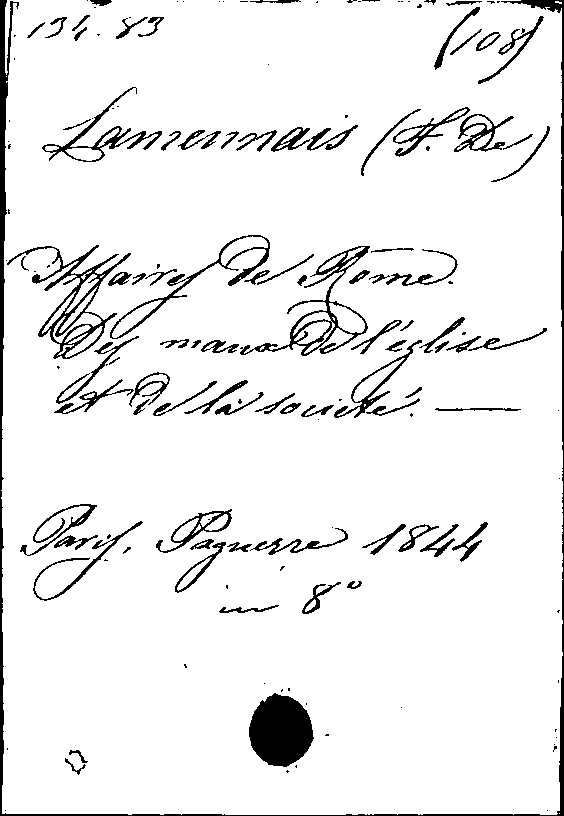 134.83
(108)
Lamennais (F. De)
Affaires de Rome.
Des maux de l'église
et de la société. —
Paris, Pagnerre 1844
in 8°